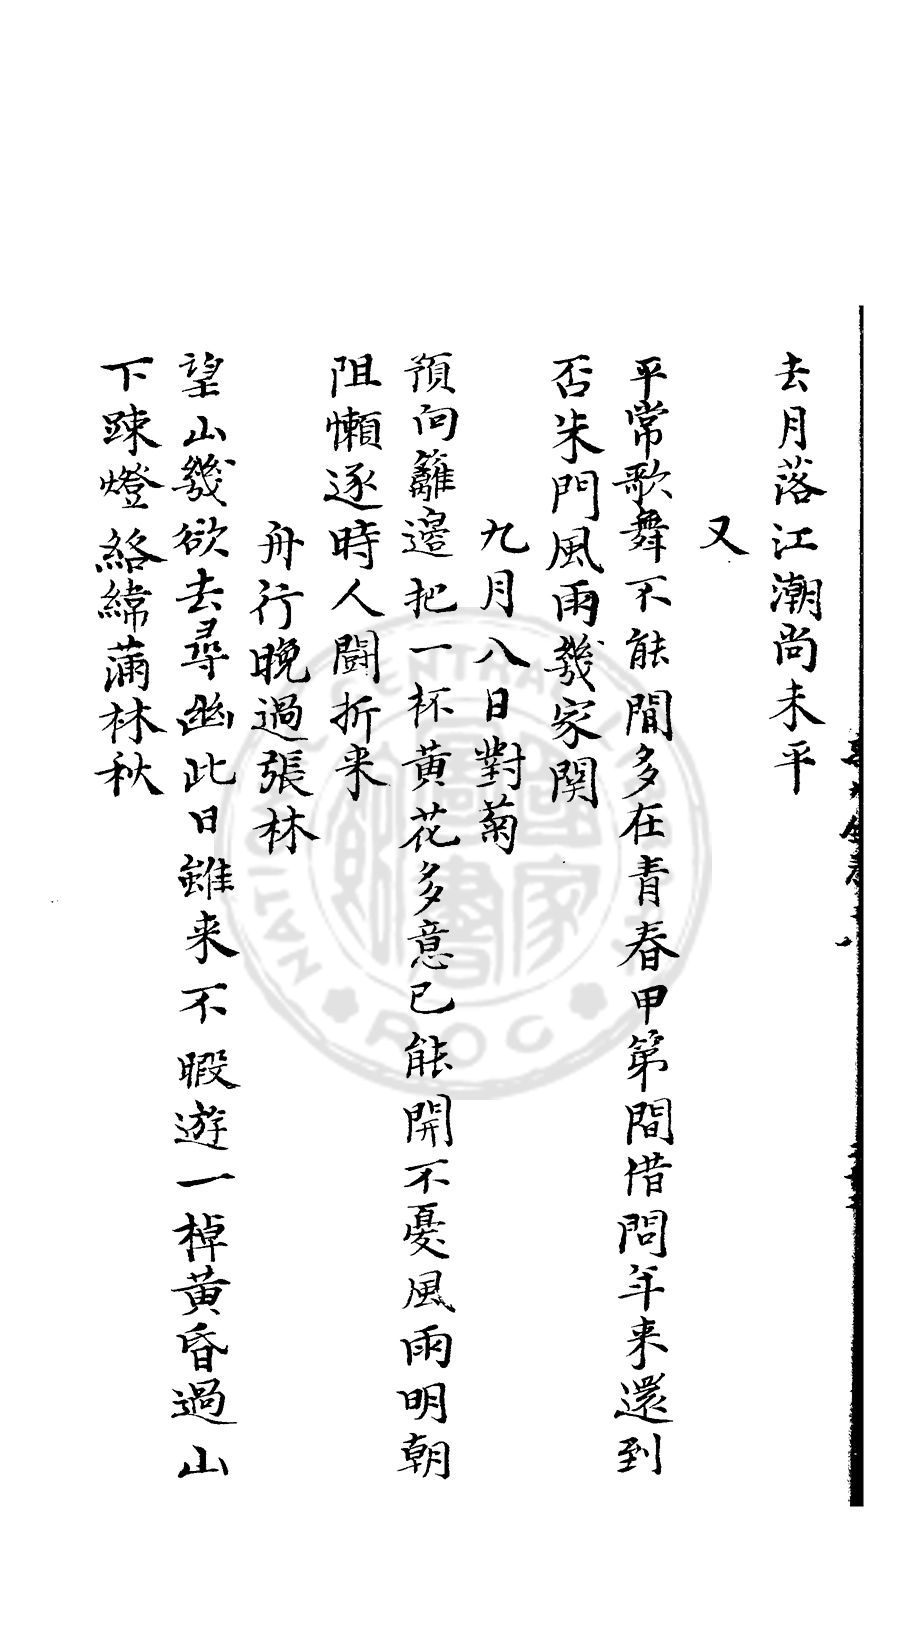 去月落江潮尚未平
又
平常歌舞不能閒多在青春甲第間借問年来還到
否朱門風雨幾家関
九月八日對菊
預向籬邉把一杯黄花多意已能開不憂風雨明朝
阻懶逐時人鬪折来
舟行晚過張林
望山幾欲去尋幽此日雖来不暇遊一棹黄昏過山
下踈燈絡緯蒲林秋
NATIONAL CENTRAL LIBRARY
ROC
國家圖書館